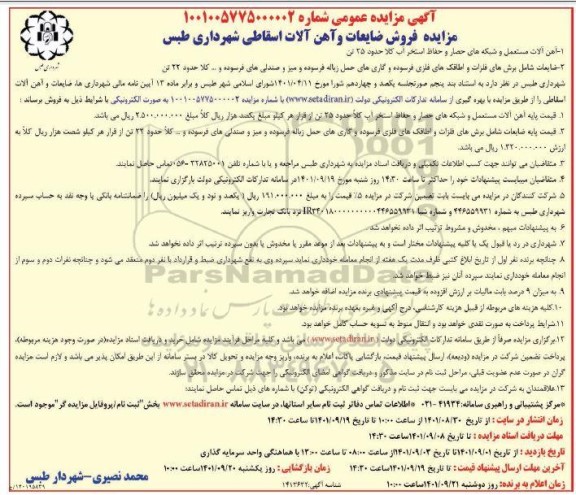 آگهی مزایده عمومی شماره ۱۰۰۱۰۰۵۷۷۵۰۰۰۰۰۲
مزایده فروش ضایعات وآهن آلات اسقاطی شهرداری طبس
۱-آهن آلات مستعمل و شبکه های حصار و حفاظ استخر آب کلا حدود ۲۵ تن
۲-ضایعات شامل برش های فلزات و اطاقک های فلزی فرسوده و گاری های حمل زباله فرسوده و میز و صندلی های فرسوده و ... کلا حدود ۲۲ تن
شهرداری طبس در نظر دارد به استناد بند پنجم صورتجلسه یکصد و چهاردهم شورا مورخ ۱۴۰۱/۰۴/۱۱شورای اسلامی شهر طبس و برابر ماده ۱۳ آیین نامه مالی شهرداری ها، ضایعات و آهن آلات
اسقاطی را از طریق مزایده با بهره گیری از سامانه تدارکات الکترونیکی دولت (www.setadiran.ir) با شماره مزایده ۱۰۰۱۰۰۵۷۷۵۰۰۰۰۰۲ به صورت الکترونیکی با شرایط ذیل به فروش برساند :
۱. قیمت پایه آهن آلات مستعمل و شبکه های حصار و حفاظ استخر آب کلاً حدود ۲۵ تن از قرار هر کیلو مبلغ یکصد هزار ریال کلاً مبلغ ۲.۵۰۰.۰۰۰.۰۰۰ ریال می باشد.
۲. قیمت پایه ضایعات شامل برش های فلزات و اطاقک های فلزی فرسوده و گاری های حمل زباله فرسوده و میز و صندلی های فرسوده و ... کلا حدود ۲۲ تن از قرار هر کیلو شصت هزار ریال کلاً به
ارزش ۱.۳۲۰.۰۰۰.۰۰۰ ریال می باشد.
۳. متقاضیان می توانند جهت کسب اطلاعات تکمیلی و دریافت اسناد مزایده به شهرداری طبس مراجعه و یا با شماره تلفن ۳۲۸۲۵۰۰۱-۰۵۶ تماس حاصل نمایند.
۴. متقاضیان میبایست پیشنهادات خود را حداکثر تا ساعت ۱۴:۳۰ روز شنبه مورخ ۱۴۰۱/۰۹/۱۹در سامانه تدارکات الکترونیکی دولت بارگزاری نمایند.
۵. شرکت کنندگان در مزایده می بایست بابت تضمین شرکت در مزایده ۵٪ قیمت را به مبلغ ۱۹۱.۰۰۰.۰۰۰ ریال ( یکصد و نود و یک میلیون ریال) را ضمانتنامه بانکی یا وجه نقد به حساب سپرده
شهرداری طبس به شماره ۴۴۶۵۵۹۹۳۱ و شماره شبا نزد بانک تجارت واریز نمایند.
۶. به پیشنهادات مبهم ، مخدوش و مشروط ترتیب اثر داده نخواهد شد.
۷. شهرداری در رد یا قبول یک یا کلیه پیشنهادات مختار است و به پیشنهادات بعد از موعد مقرر یا مخدوش یا بدون سپرده ترتیب اثر داده نخواهد شد.
۸. چنانچه برنده نفر اول از تاریخ ابلاغ کتبی ظرف مدت یک هفته از انجام معامله خودداری نماید سپرده وی به نفع شهرداری ضبط و قرارداد با نفر دوم منعقد می شود و چنانچه نفرات دوم و سوم از
انجام معامله خودداری نمایند سپرده آنان نیز ضبط خواهد شد.
۹. به میزان ۹ درصد بابت مالیات بر ارزش افزوده به قیمت پیشنهادی برنده مزایده اضافه خواهد شد.
۱۰.کلیه هزینه های مربوطه از قبیل هزینه کارشناسی، درج آگهی و غیره بعهده برنده مزایده خواهد بود.
۱۱.شرایط پرداخت به صورت نقدی خواهد بود و انتقال منوط به تسویه حساب کامل خواهد بود.
۱۲.برگزاری مزایده صرفاً از طریق سامانه تدارکات الکترونیکی دولت ( www.setadiran.ir ) می باشد و کلیه مراحل فرآیند مزایده شامل خرید و دریافت اسناد مزایده(در صورت وجود هزینه مربوطه)،
پرداخت تضمین شرکت در مزایده (ودیعه)، ارسال پیشنهاد قیمت، بازگشایی پاکات، اعلام به برنده، واریز وجه مزایده و تحویل کالا در بستر سامانه از این طریق امکان پذیر می باشد و لازم است مزایده
گران در صورت عدم عضویت قبلی، مراحل ثبت نام در سایت مذکور و دریافت گواهی امضای الکترونیکی را جهت شرکت در مزایده محقق سازند.
۱۳.علاقمندان به شرکت در مزایده می بایست جهت ثبت نام و دریافت گواهی الکترونیکی (توکن) با شماره های ذیل تماس حاصل نمایند:
*مرکز پشتیبانی و راهبری سامانه:۴۱۹۳۴-۰۲۱ *اطلاعات تماس دفاتر ثبت نام سایر استانها، در سایت سامانه www.setadiran.ir بخش"ثبت نام/پروفایل مزایده گر"موجود است.
زمان انتشار در سایت : از تاریخ ۱۴۰۱/۰۸/۳۰ از ساعت ۱۰:۰۰ تا تاریخ ۱۴۰۱/۰۹/۱۹ تا ساعت ۱۴:۳۰
مهلت دریافت اسناد مزایده : تا تاریخ ۱۴۰۱/۰۹/۰۸ تا ساعت ۱۴:۳۰
تاریخ بازدید : از تاریخ ۱۴۰۱/۰۹/۰۱ تا تاریخ ۱۴۰۱/۰۹/۰۳ از ساعت ۰۸:۰۰ تا ساعت ۱۳:۰۰ با هماهنگی واحد سرمایه گذاری
آخرین مهلت ارسال پیشنهاد قیمت : تا تاریخ ۱۴۰۱/۰۹/۱۹ تا ساعت ۱۴:۳۰ زمان بازگشایی : روز یکشنبه ۱۴۰۱/۰۹/۲۰ ساعت ۱۰:۰۰
زمان اعلام به برنده: روز دوشنبه ۱۴۰۱/۰۹/۲۱ ساعت ۱۰:۰۰ شناسه آگهی:۱۴۱۳۶۲۳ محمد نصیری-شهردار طبس
ParsNamadData